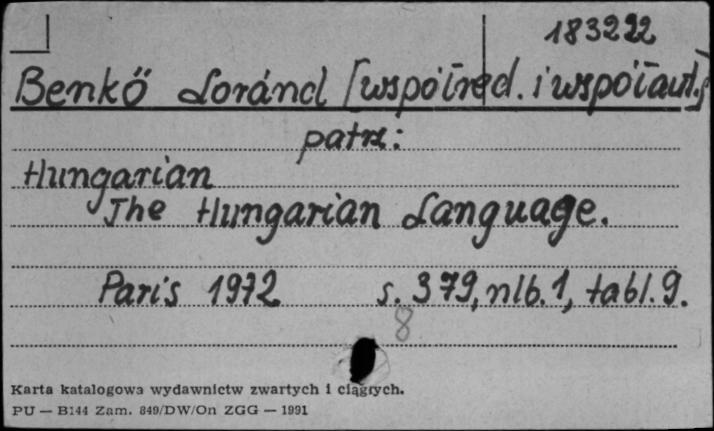 183222
Benkő Loránd [współred. i współaut.]
patrz:
Hungarian
The Hungarian Language.
Paris 1972 s. 379, nlb. 1, tabl. 9.
8
Karta katalogowa wydawnictw zwartych i ciągłych.
PU — B144 Zam. 849/DW/On ZGG — 1991